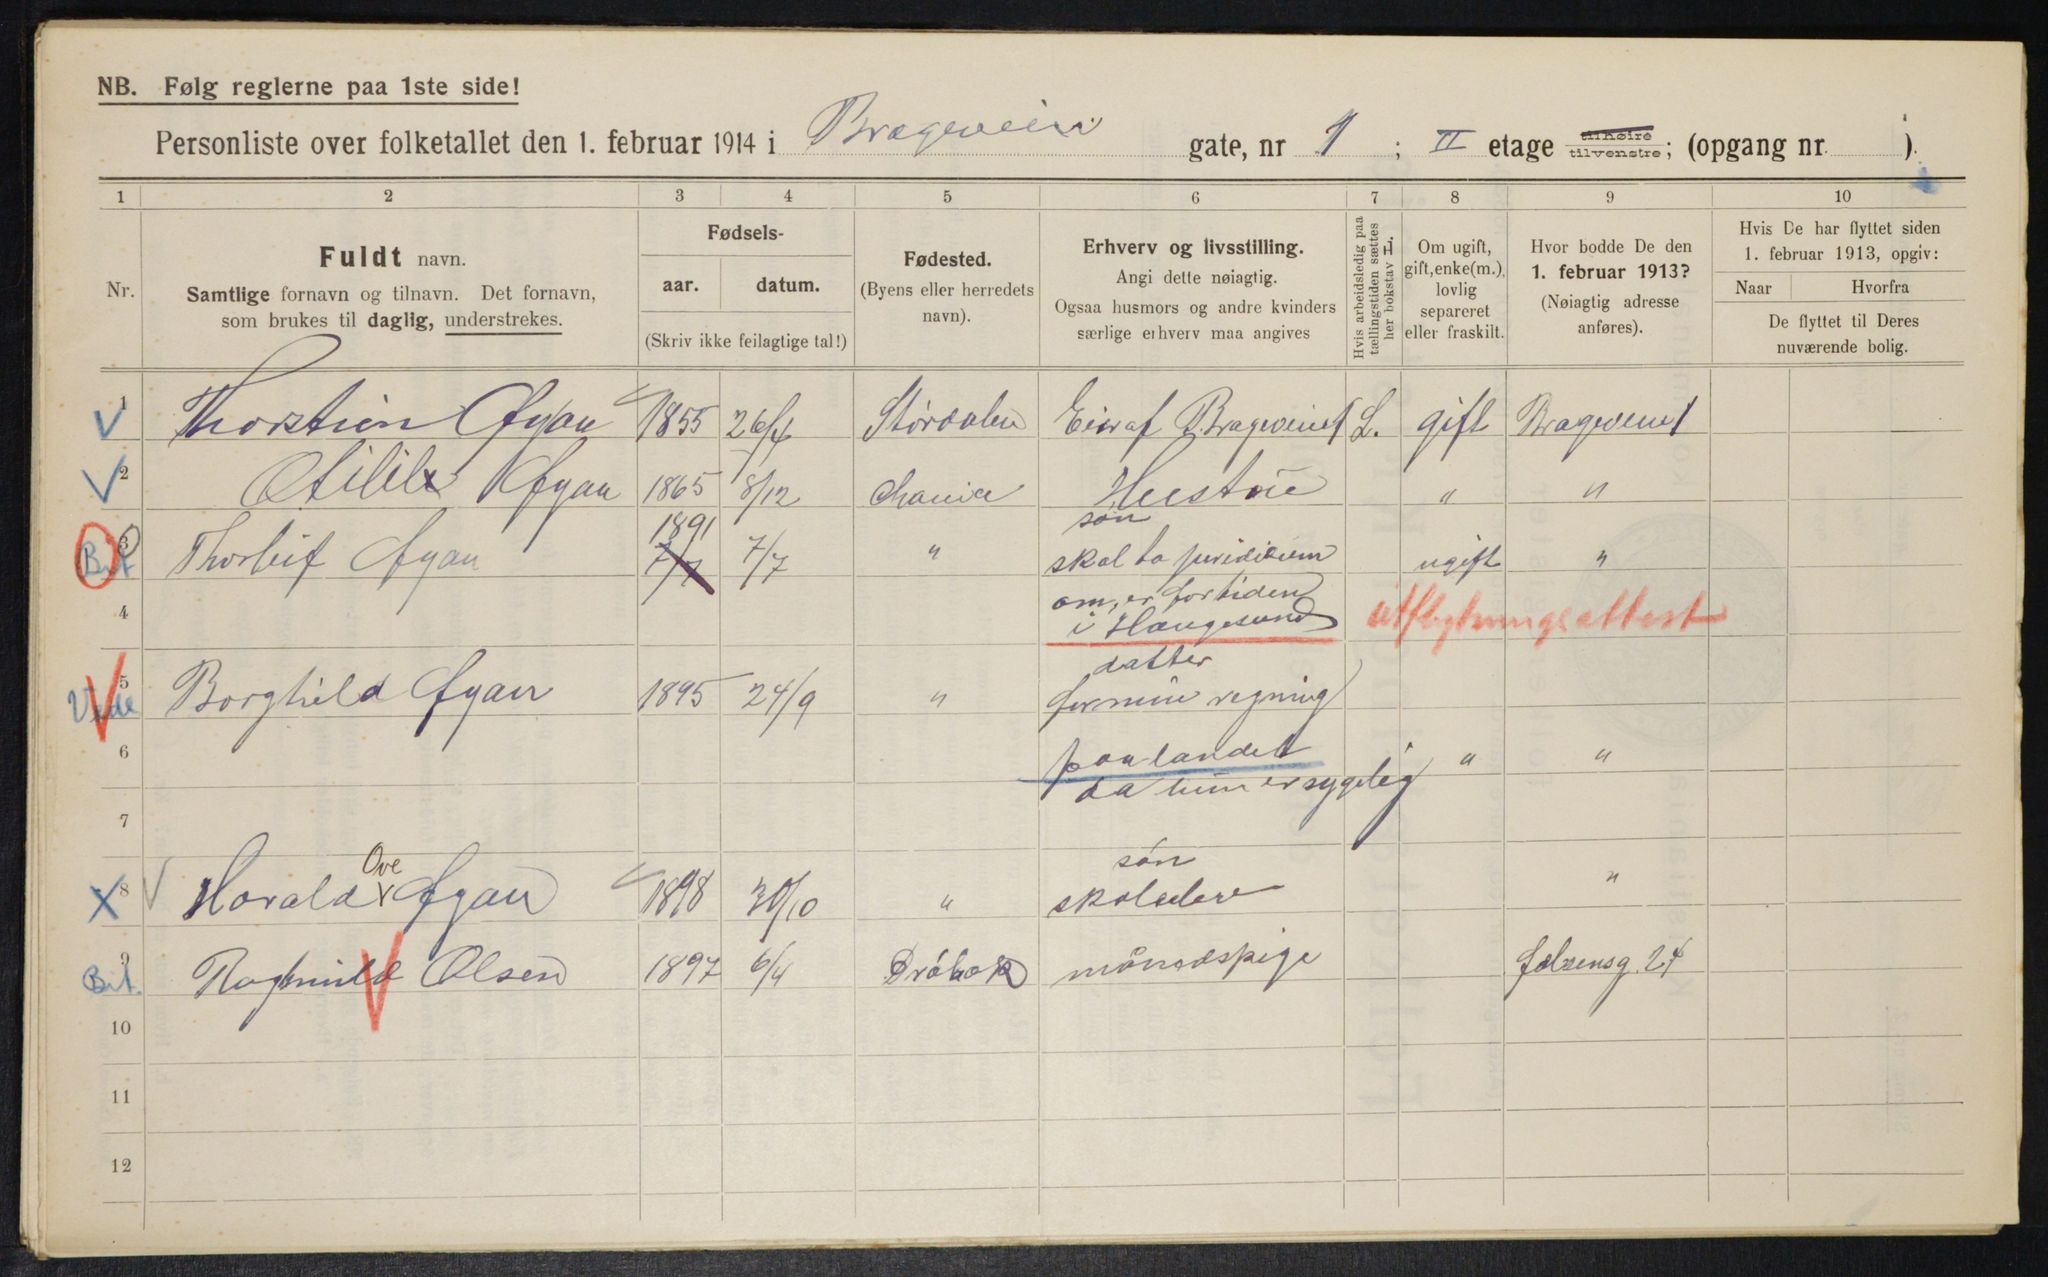 NB. Følg reglerne paa 1ste side!
Personliste over folketallet den 1. februar 1914 i Brageveien gate, nr 1 ; II etage tilhøire tilvenstre; (opgang nr. ).
1 2 3 4 5 6 7 8 9 10
Nr.
Fuldt navn.
Samtlige fornavn og tilnavn. Det fornavn,
som brukes til daglig, understrekes.
Fødsels-
aar. datum.
(Skriv ikke feilagtige tal!)
Fødested.
(Byens eller herredets
navn).
Erhverv og livsstilling.
Angi dette nøiagtig.
Ogsaa husmors og andre kvinders
særlige erhverv maa angives
Hvis arbeidsledig paa
tællingstiden sættes
her bokstav L.
Om ugift,
gift, enke(m.),
lovlig
separeret
eller fraskilt.
Hvor bodde De den
1. februar 1913?
(Nøiagtig adresse
anføres).
Hvis De har flyttet siden
1. februar 1913, opgiv:
Naar Hvorfra
De flyttet til Deres
nuværende bolig.
1 1855 26/4 Størdalen Eier af Brageveien 1 L. gift Brageveien 1
2 1865 8/12 " "
1891 søn
Bit 3 Thorleif 7/7 7/7 " skal ta juridicum ugift "
4 om, er for tiden
i Haugesund utflytningsattest
datter
5 Borghild 1895 24/9 " for min regning
6 paa landet " "
da hun er sygelig
7
Ove søn
8 Harald 1898 30/10 " skoleelev "
Bit. 9 Raghnild Olsen 1897 6/4 Drøbak månedspige 24
10
11
12